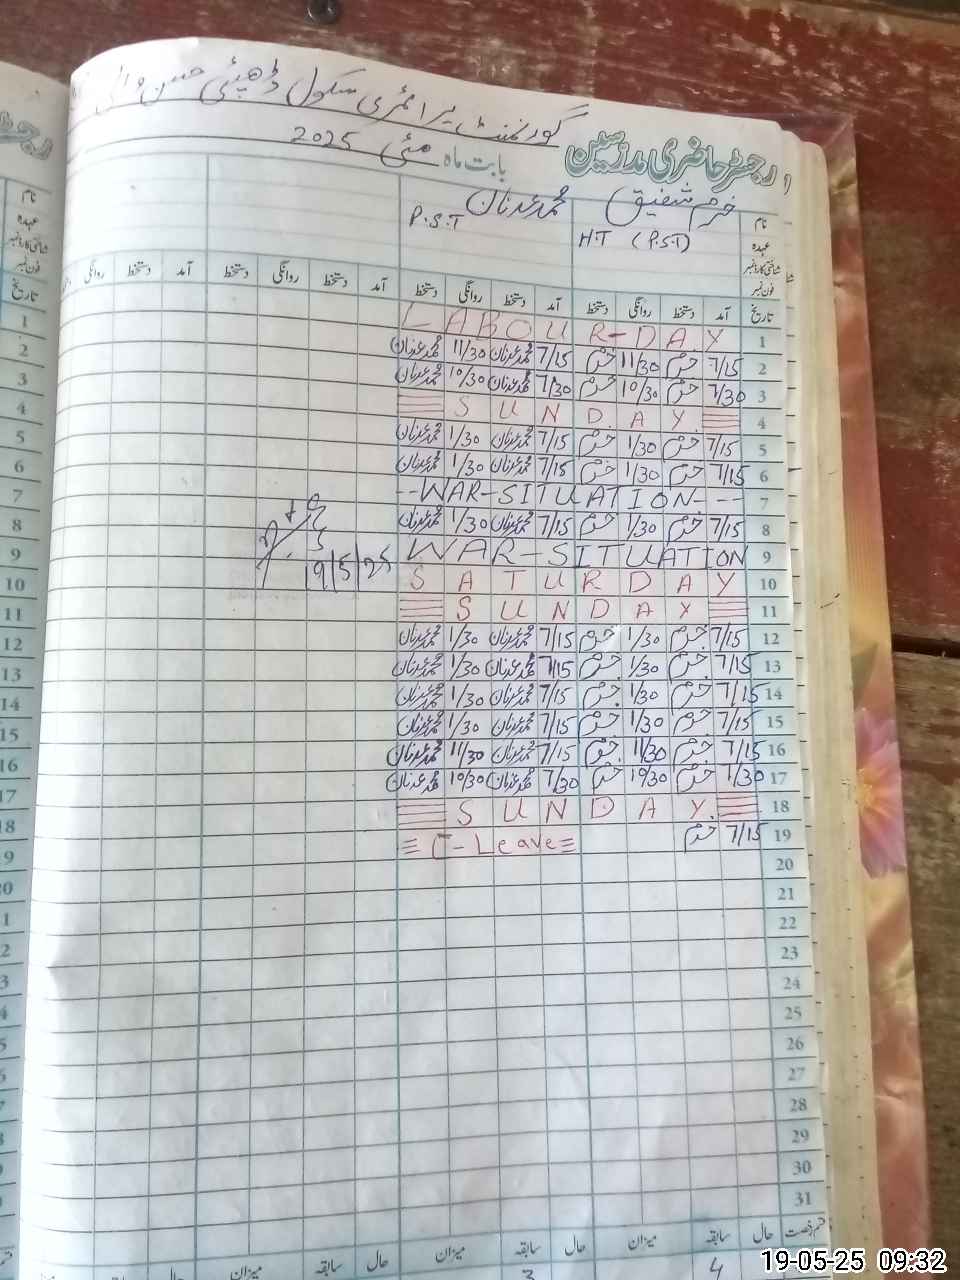 گورنمنٹ پرائمری سکول ڈھپئی حسن والی
رجسٹر حاضری مدرسین
بابت ماہ مئی 2025
نام خرم شفیق محمد عدنان
عہدہ H.T (P.S.T) P.S.T
شناختی کارڈ نمبر
فون نمبر
تاریخ آمد دستخط روانگی دستخط آمد دستخط روانگی دستخط آمد دستخط روانگی دستخط آمد دستخط روانگی
1 LABOUR-DAY
2 7/15 خرم 11/30 خرم 7/15 محمد عدنان 11/30 محمد عدنان
3 7/30 خرم 10/30 خرم 7/30 محمد عدنان 10/30 محمد عدنان
4 SUNDAY
5 7/15 خرم 1/30 خرم 7/15 محمد عدنان 1/30 محمد عدنان
6 7/15 خرم 1/30 خرم 7/15 محمد عدنان 1/30 محمد عدنان
7 --WAR-SITUATION---
8 7/15 خرم 1/30 خرم 7/15 محمد عدنان 1/30 محمد عدنان
9 WAR-SITUATION
10 SATURDAY
19/5/25
11 SUNDAY
12 7/15 خرم 1/30 خرم 7/15 محمد عدنان 1/30 محمد عدنان
13 7/15 خرم 1/30 خرم 7/15 محمد عدنان 1/30 محمد عدنان
14 7/15 خرم 1/30 خرم 7/15 محمد عدنان 1/30 محمد عدنان
15 7/15 خرم 1/30 خرم 7/15 محمد عدنان 1/30 محمد عدنان
16 7/15 خرم 11/30 خرم 7/15 محمد عدنان 11/30 محمد عدنان
17 7/30 خرم 10/30 خرم 7/30 محمد عدنان 10/30 محمد عدنان
18 SUNDAY.
19 7/15 خرم C-Leave
20
21
22
23
24
25
26
27
28
29
30
31
قسم رخصت حال سابقہ میزان حال سابقہ میزان حال سابقہ میزان حال
4 3
19-05-25 09:32